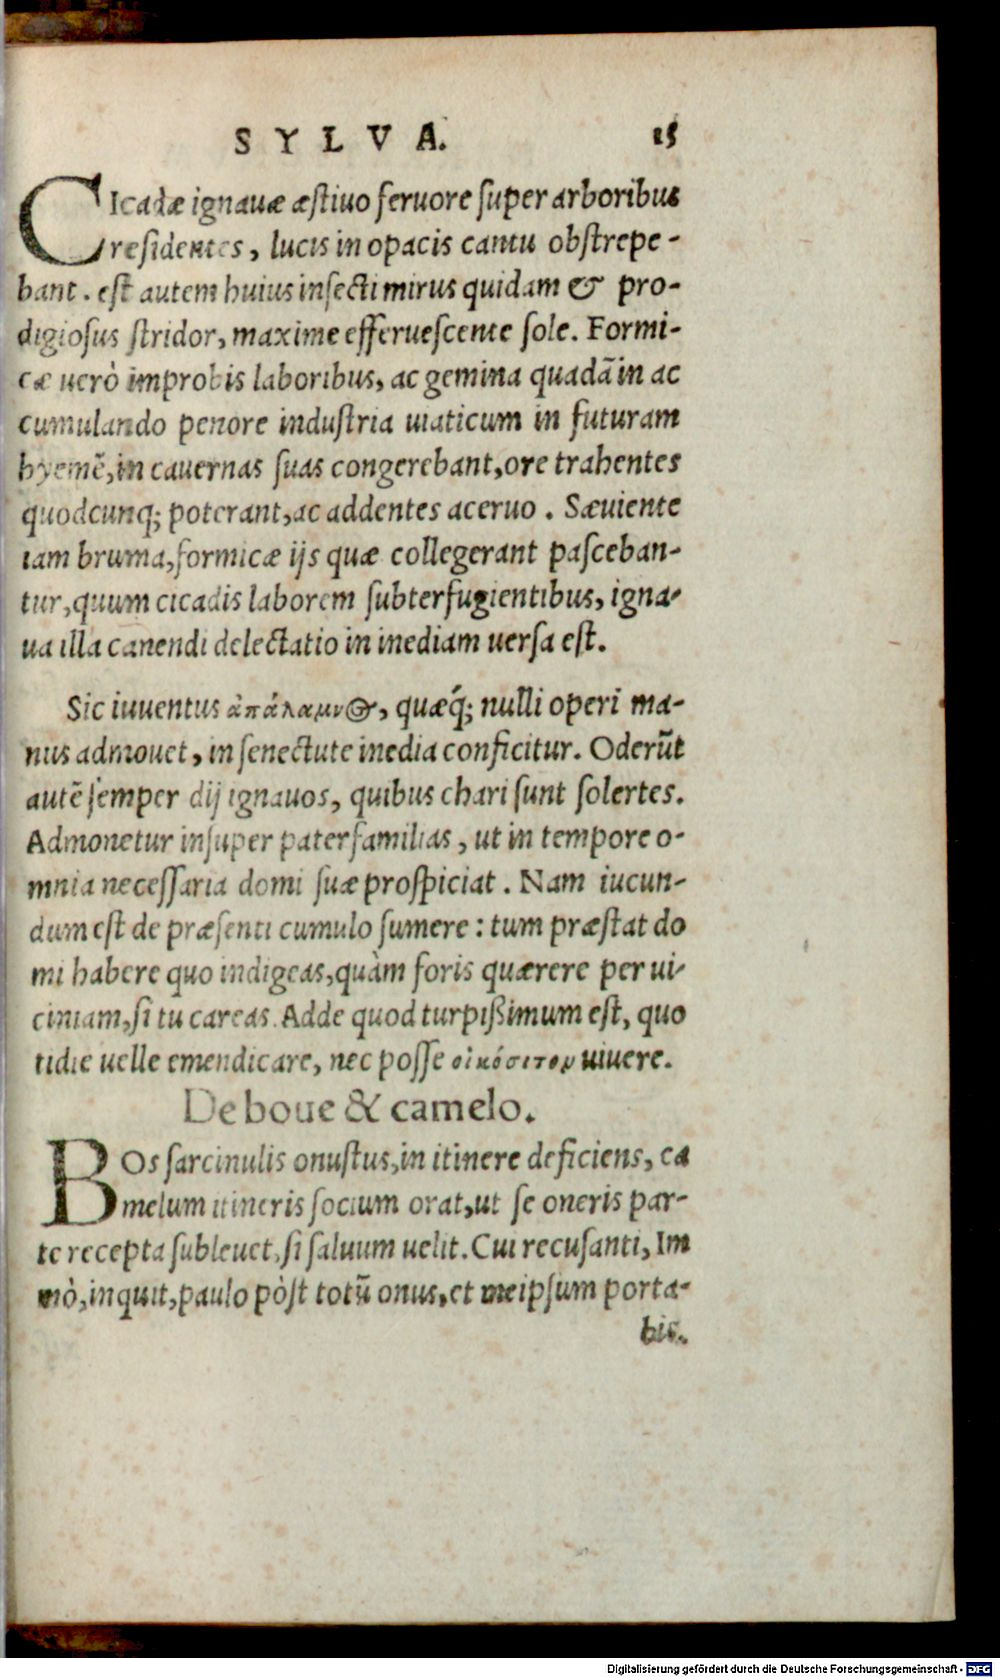 SYLVA. 15
CIcadæ ignauæ æstiuo feruore super arboribus
residentes, lucis in opacis cantu obstrepe-
bant. est autem huius insecti mirus quidam & pro-
digiosus stridor, maxime efferuescente sole. Formi-
cæ uerò improbis laboribus, ac gemina quadã in ac
cumulando penore industria uiaticum in futuram
hyemẽ, in cauernas suas congerebant, ore trahentes
quodcunq; poterant, ac addentes aceruo. Sæuiente
iam bruma, formicæ ijs quæ collegerant pasceban-
tur, quum cicadis laborem subterfugientibus, igna-
ua illa canendi delectatio in inediam uersa est.
Sic iuuentus ἀπάλαμνος, quæq́; nulli operi ma-
nus admouet, in senectute inedia conficitur. Oderũt
autẽ semper dij ignauos, quibus chari sunt solertes.
Admonetur insuper paterfamilias, ut in tempore o-
mnia necessaria domi suæ prospiciat. Nam iucun-
dum est de præsenti cumulo sumere: tum præstat do
mi habere quo indigeas, quàm foris quærere per ui-
ciniam, si tu careas. Adde quod turpißimum est, quo
tidie uelle emendicare, nec posse οἰκόσιτον uiuere.
De boue & camelo.
BOs sarcinulis onustus, in itinere deficiens, ca
melum itineris socium orat, ut se oneris par-
te recepta subleuet, si saluum uelit. Cui recusanti, Im
mò, inquit, paulo pòst totũ onus, et meipsum porta-
bis.
Digitalisierung gefördert durch die Deutsche Forschungsgemeinschaft - DFG